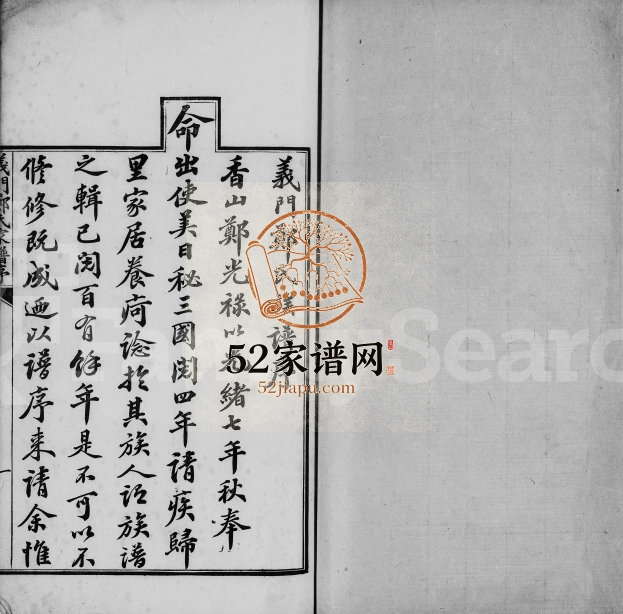 義門鄭氏族譜序
香山鄭光祿以光緒七年秋奉
命出使美日秘三國閱四年請疾歸
里家居養疴諗於其族人謂族譜
之輯已閱百有餘年是不可以不
修修既成迺以譜序来請余惟
義門鄭氏家譜序
一
52家谱网
52jiapu.com
FamilySearch